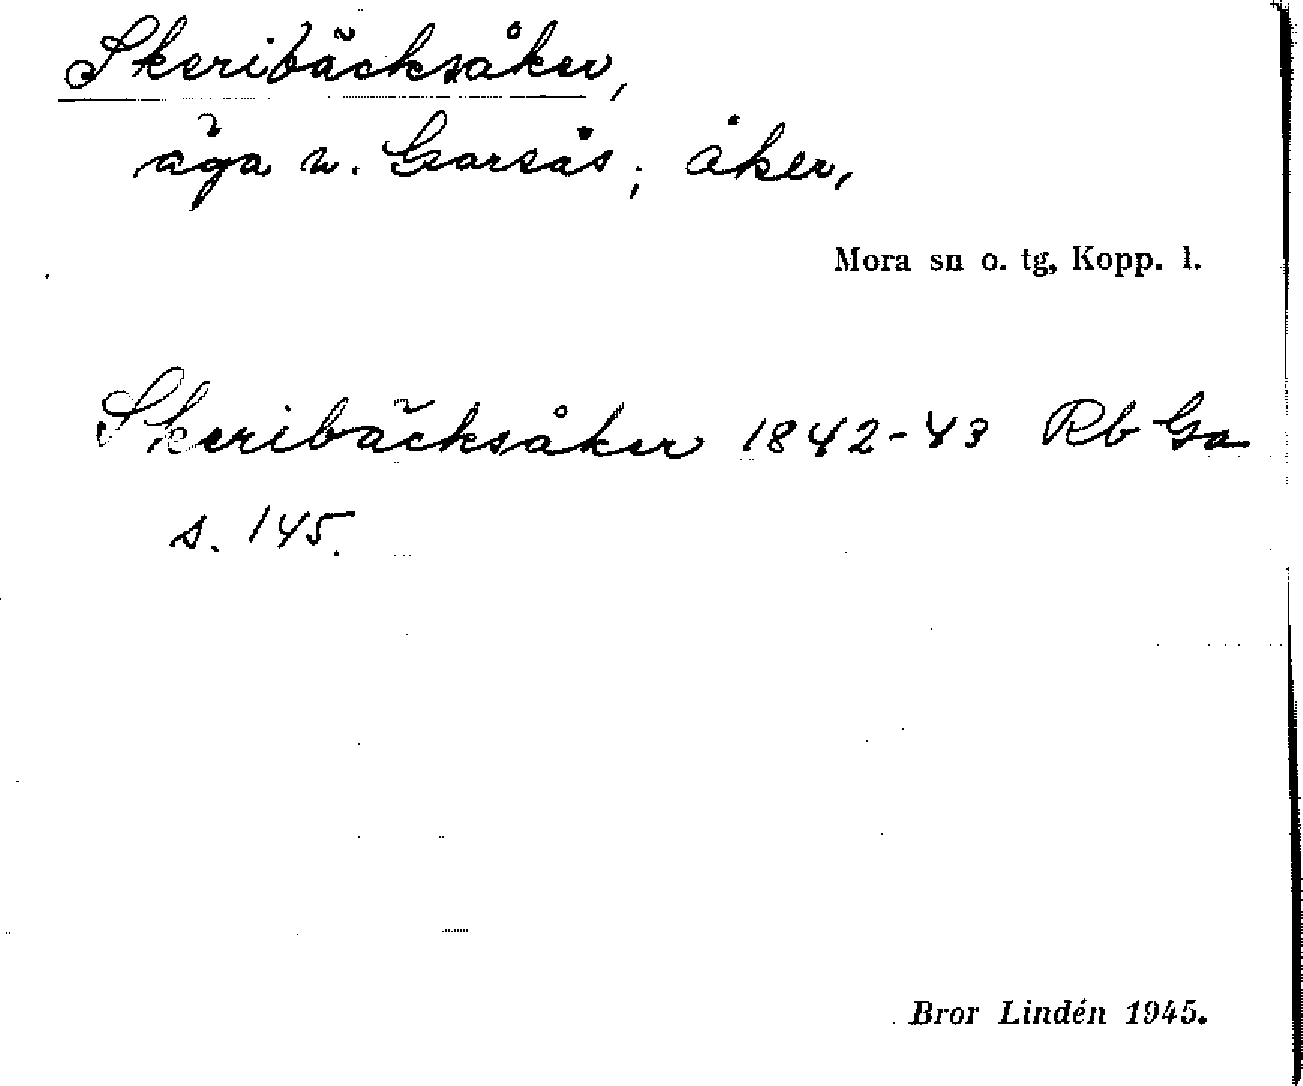 Skeribäcksåker,
äga n. Garsås; åker,
Mora sn o. tg, Kopp. l.
Skeribäcksåker 1842-43 Rb Ga
s. 145.
Bror Lindén 1945.